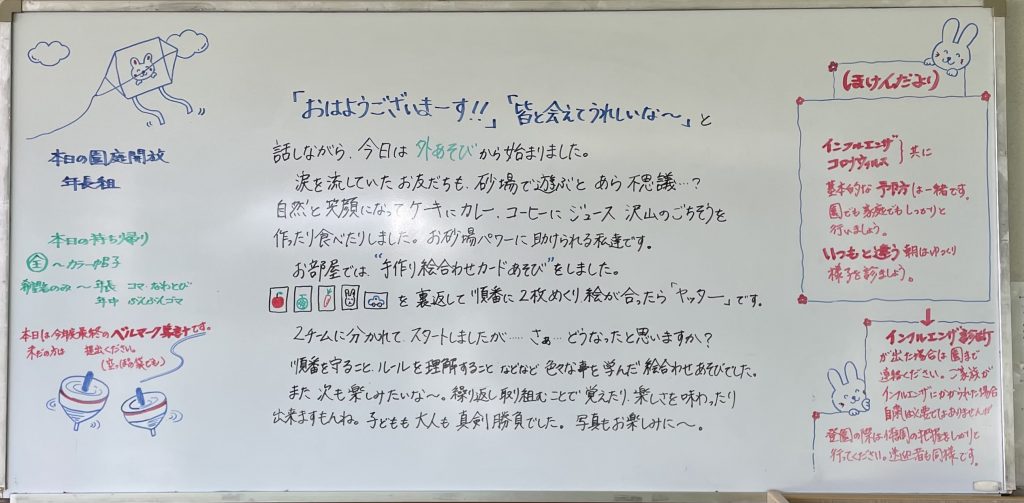 本日の園庭開放
年長組
本日の持ち帰り
全〜カラー帽子
希望者のみ〜年長 コマ・なわとび
年中 ぶんぶんゴマ
本日は今年度最終のベルマーク募集日です。
未だの方は 提出ください。
(空っぽの袋でも)
「おはようございまーす!!」「皆と会えてうれしいな〜」と
話しながら、今日は外あそびから始まりました。
涙を流していたお友だちも、砂場で遊ぶと あら不思議…?
自然と笑顔になってケーキにカレー、コーヒーにジュース 沢山のごちそうを
作ったり食べたりしました。お砂場パワーに助けられる私達です。
お部屋では"手作り絵合わせカードあそび"をしました。
を裏返して順番に2枚めくり絵が合ったら「ヤッター」です。
2チームに分かれて、スタートしましたが…… さぁ… どうなったと思いますか?
順番を守ること、ルールを理解すること などなど 色々な事を学んだ絵合わせあそびでした。
また 次も楽しみたいな〜。繰り返し取り組むことで覚えたり、楽しさを味わったり
出来ますもんね。子どもも大人も真剣勝負でした。 写真もお楽しみに〜。
ほけんだより
インフルエンザ
コロナウィルス 共に
基本的な予防は一緒です。
園でも家庭でもしっかりと
行いましょう。
いつもと違う 朝はゆっくり
様子を診ましょう。
インフルエンザ診断
が出た場合は園まで
連絡ください。ご家族が
インフルエンザにかかられた場合
自粛は必要ではありませんが
登園の際は体調の把握をしっかりと
行ってください。送迎者も同様です。